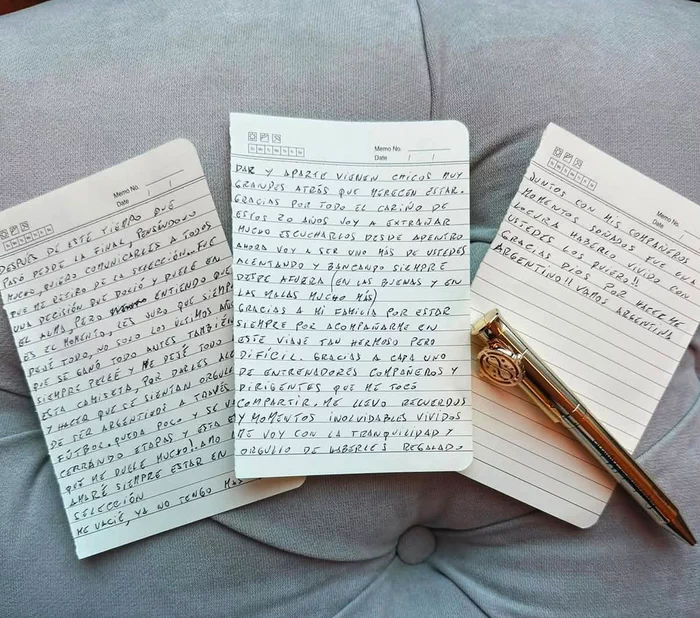 Memo No.
Date / /
DESPUES DE ESTE TIEMPO QUE
PASÓ DESDE LA FINAL, PENSÁNDOLO
MUCHO, QUIERO COMUNICARLES A TODOS
QUE ME RETIRO DE LA SELECCIÓN. FUE
UNA DECISIÓN QUE DOLIÓ Y DUELE EN
EL ALMA, PERO ENTIENDO QUE
ES EL MOMENTO, LES JURO QUE SIEMPRE
DEJÉ TODO, NO SOLO LOS ULTIMOS AÑOS
QUE SE GANÓ TODO ANTES TAMBIÉN
SIEMPRE PELEÉ Y ME DEJÉ TODO
ESTA CAMISETA, POR DARLES AL
Y HACER QUE SE SIENTAN ORGULL
DE SER ARGENTINOS A TRAVÉS
FÚTBOL. QUEDA POCO Y SE V
CERRANDO ETAPAS Y ESTA E
QUE ME DUELE MUCHO! AMO L
AMARÉ SIEMPRE ESTAR EN
SELECCIÓN
ME VACIÉ, YA NO TENGO MÁS
Memo No.
Date / /
DAR Y APARTE VIENEN CHICOS MUY
GRANDES ATRÁS QUE MERECEN ESTAR.
GRACIAS POR TODO EL CARIÑO DE
ESTOS 20 AÑOS VOY A EXTRAÑAR
MUCHO ESCUCHARLOS DESDE ADENTRO
AHORA VOY A SER UNO MÁS DE USTEDES
ALENTANDO Y BANCANDO SIEMPRE
DESDE AFUERA (EN LAS BUENAS Y EN
LAS MALAS MUCHO MÁS)
GRACIAS A MI FAMILIA POR ESTAR
SIEMPRE POR ACOMPAÑARME EN
ESTE VIAJE TAN HERMOSO PERO
DIFÍCIL. GRACIAS A CADA UNO
DE ENTRENADORES COMPAÑEROS Y
DIRIGENTES QUE ME TOCÓ
COMPARTIR. ME LLEVO RECUERDOS
Y MOMENTOS INOLVIDABLES VIVIDOS
ME VOY CON LA TRANQUILIDAD Y
ORGULLO DE HABERLES REGALADO
Memo No.
Date / /
JUNTOS CON MIS COMPAÑEROS
MOMENTOS SOÑADOS FUE UNA
LOCURA HABERLO VIVIDO CON
USTEDES LOS QUIERO!!
GRACIAS DIOS POR HACERME
ARGENTINO!! VAMOS ARGENTINA